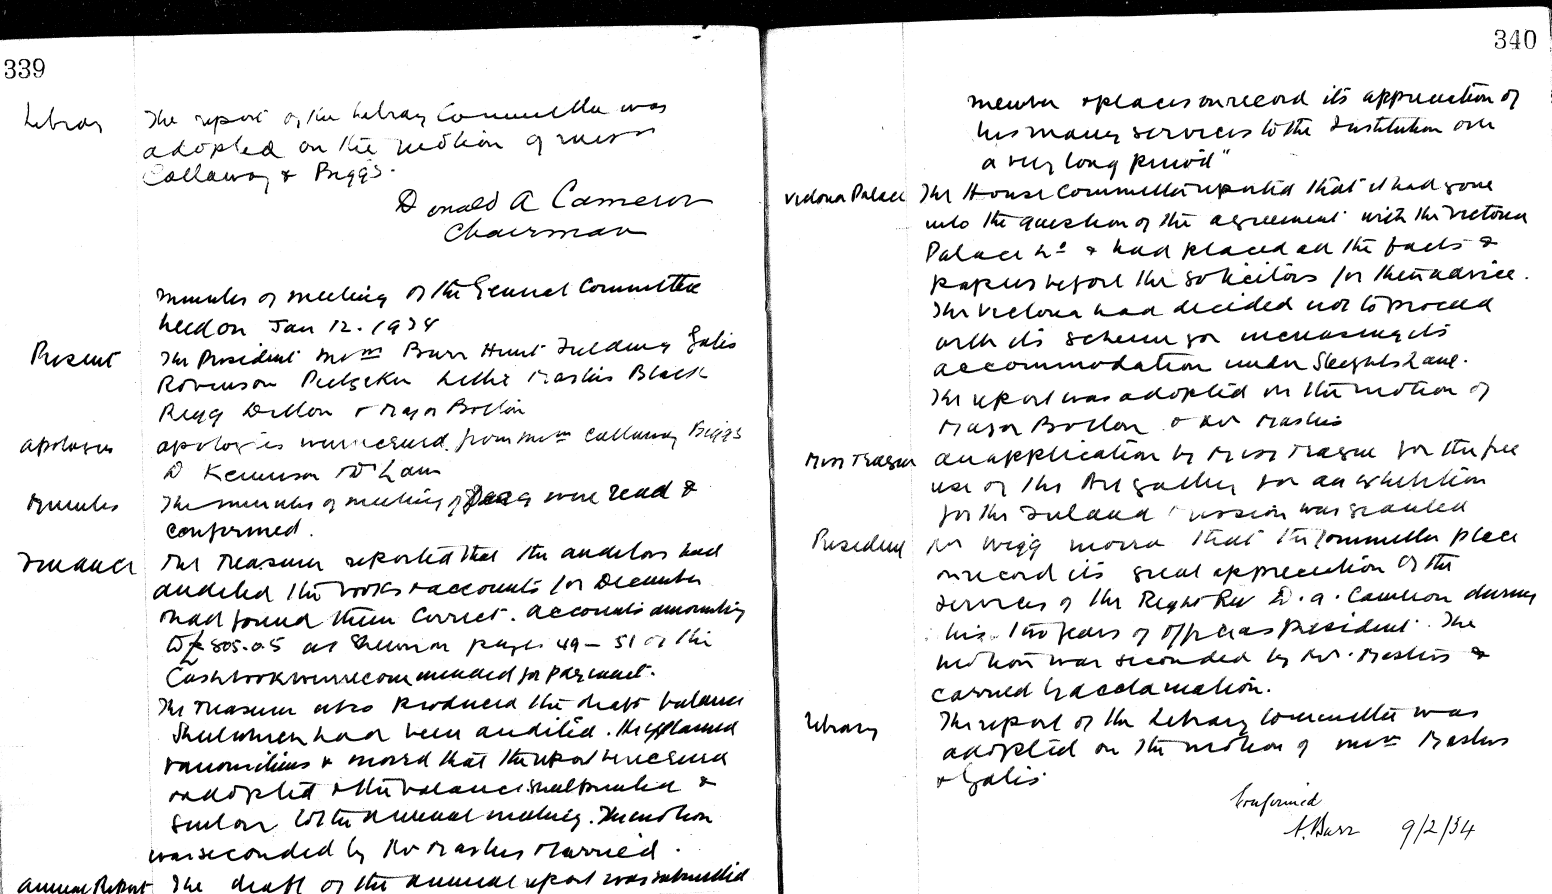 339
Library
The report of the Library Committee was
adopted on the motion of Messrs
Callaway & Biggs.
Donald A Cameron
Chairman
Minutes of meeting of the General Committee
held on Jan 12. 1934
Present
The President Messrs Barr Hunt Fielding Gates
Robinson Leslie Masters Black
Dillon & Major Bolton
Apologies
apologies were received from Messrs Callaway Biggs
Dr Law
Minutes
The minutes of meeting of were read &
confirmed.
Finance
The Treasurer reported that the auditors had
audited the books & accounts for December
& had found them correct. Accounts amounting
to £805.0.5 as shewn on pages 49 – 51 of the
Cashbook were recommended for payment.
The Treasurer also produced the draft balance
Sheet which had been audited. He explained
various items & moved that the report be received
& adopted & the balance sheet printed &
sent on to the annual meeting. The motion
was seconded by Mr Masters & carried.
Annual Report
The draft of the annual report was submitted
340
member & places on record its appreciation of
his many services to the Institution over
a very long period"
Victoria Palace
The House Committee reported that it had gone
into the question of the agreement with the Victoria
Palace Ld & had placed all the facts &
papers before the solicitors for their advice.
The Victoria had decided not to proceed
with its scheme for increasing its
accommodation under Sleights Lane.
The report was adopted on the motion of
Major Bolton & Mr Masters
Miss Teague
An application by Miss Teague for the free
use of the Art gallery for an exhibition
for the Inland Mission was granted
President
Mr Wigg moved that the Committee place
on record its great appreciation of the
services of the Right Rev D. A. Cameron during
his two years of office as President. The
motion was seconded by Mr. Masters &
carried by acclamation.
Library
The report of the Library Committee was
adopted on the motion of Messrs Masters
& Gates.
Confirmed
A. Barr 9/2/34